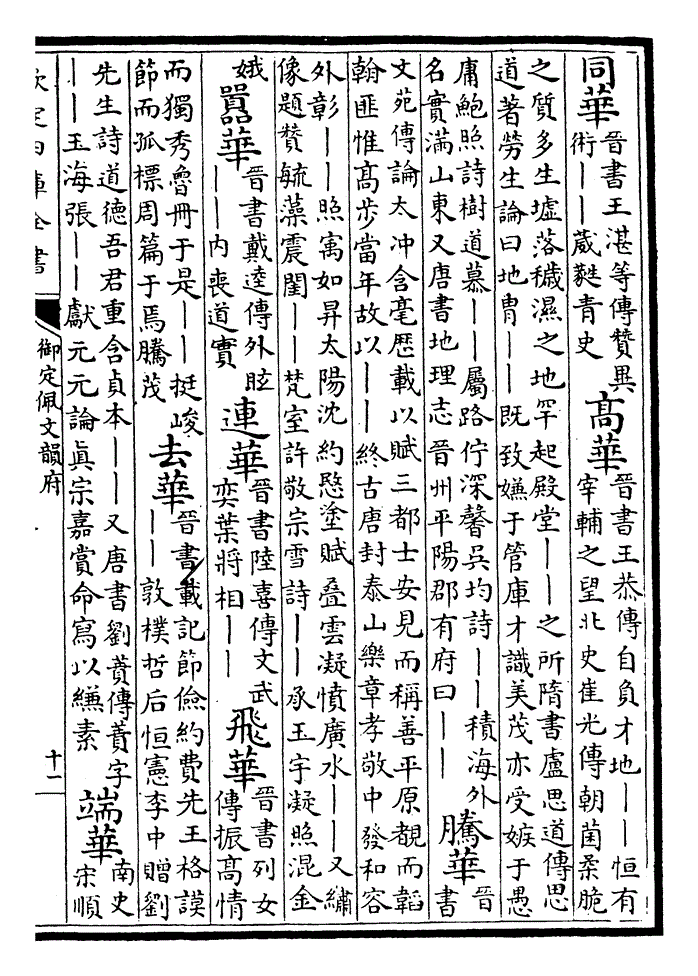 同華晉書王湛等傳贊異
術——葳蕤青史
高華晉書王恭傳自負才地——恒有
宰輔之望北史崔光傳朝菌柔脆
之質多生墟落穢濕之地罕起殿堂——之所隋書盧思道傳思
道著勞生論曰地胄——既致嫌于管庫才識美茂亦受嫉于愚
庸鮑照詩樹道慕——屬路佇深馨吳均詩——積海外
名實滿山東又唐書地理志晉州平陽郡有府曰——
騰華晉
書
文苑傳論太冲含毫歴載以賦三都士安見而稱善平原覩而韜
翰匪惟髙步當年故以——終古唐封泰山樂章孝敬中發和容
外彰——照寓如昇太陽沈約愍塗賦叠雲凝憤廣水——又繡
像題贊毓藻震閨——梵室許敬宗雪詩——承玉宇凝照混金
娥
囂華晉書戴逵傳外眩
——内喪道實
連華晉書陸喜傳文武
奕葉將相——
飛華晉書列女
傳振髙情
而獨秀魯冊于是——挺峻
節而孤標周篇于焉騰茂
去華晉書載記節儉約費先王格謨
——敦樸哲后恒憲李中贈劉
先生詩道德吾君重含貞本——又唐書劉蕡傳蕡字
——玉海張——獻元元論眞宗嘉賞命寫以縑素
端華南史
宋順
欽定四庫全書
御定佩文韻府
十一